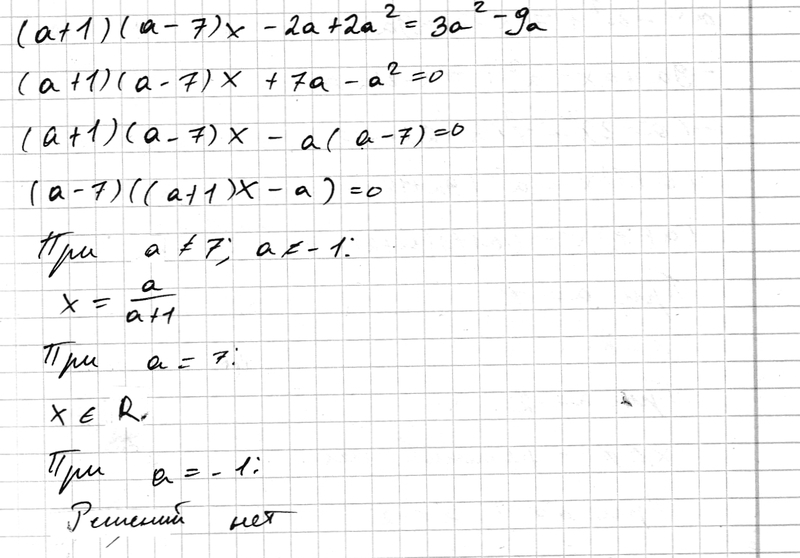 (a+1)(a-7)x - 2a + 2a² = 3a² - 9a
(a+1)(a-7)x + 7a - a² = 0
(a+1)(a-7)x - a(a-7) = 0
(a-7)((a+1)x - a) = 0
При a ≠ 7; a ≠ -1:
x = a/(a+1)
При a = 7:
x ∈ R.
При a = -1:
Решений нет